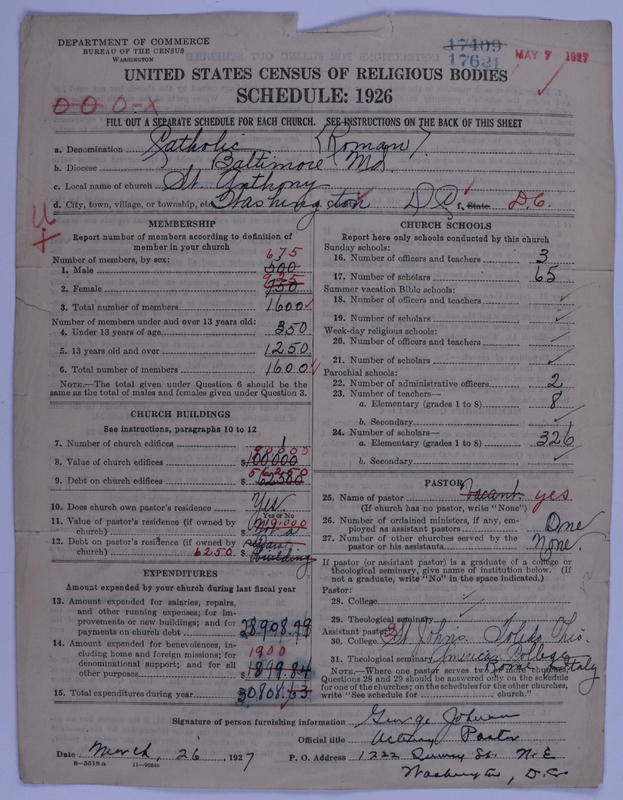 DEPARTMENT OF COMMERCE
BUREAU OF THE CENSUS
WASHINGTON
17409
17621
MAY 7 1927
UNITED STATES CENSUS OF RELIGIOUS BODIES
SCHEDULE: 1926
0 0 0-X
FILL OUT A SEPARATE SCHEDULE FOR EACH CHURCH. SEE INSTRUCTIONS ON THE BACK OF THIS SHEET
a. Denomination Catholic (Roman)
b. Diocese Baltimore Md.
c. Local name of church St. Anthony
d. City, town, village, or township, etc. Washington D.C., State D.C.
MEMBERSHIP
Report number of members according to definition of
member in your church
Number of members, by sex: 675
1. Male 500
2. Female 925 950
3. Total number of members 1600
Number of members under and over 13 years old:
4. Under 13 years of age 350
5. 13 years old and over 1250
6. Total number of members 1600
NOTE.—The total given under Question 6 should be the
same as the total of males and females given under Question 3.
CHURCH BUILDINGS
See instructions, paragraphs 10 to 12
7. Number of church edifices 1
8. Value of church edifices $100000
9. Debt on church edifices 56250 $62500
10. Does church own pastor's residence Yes
Yes or No
11. Value of pastor's residence (if owned by
church) $
12. Debt on pastor's residence (if owned by
church) 6250 $ building
EXPENDITURES
Amount expended by your church during last fiscal year
13. Amount expended for salaries, repairs,
and other running expenses; for im-
provements or new buildings; and for
payments on church debt $28908.79
14. Amount expended for benevolences, in-
cluding home and foreign missions; for
denominational support; and for all
other purposes 1900 $1899.84
15. Total expenditures during year $30808.63
CHURCH SCHOOLS
Report here only schools conducted by this church
Sunday schools:
16. Number of officers and teachers 3
17. Number of scholars 65
Summer vacation Bible schools:
18. Number of officers and teachers
19. Number of scholars
Week-day religious schools:
20. Number of officers and teachers
21. Number of scholars
Parochial schools:
22. Number of administrative officers 2
23. Number of teachers—
a. Elementary (grades 1 to 8) 8
b. Secondary
24. Number of scholars—
a. Elementary (grades 1 to 8) 326
b. Secondary
PASTOR
25. Name of pastor Vacant yes
(If church has no pastor, write "None")
26. Number of ordained ministers, if any, em-
ployed as assistant pastors One
27. Number of other churches served by the
pastor or his assistants None.
If pastor (or assistant pastor) is a graduate of a college or
theological seminary, give name of institution below. (If
not a graduate, write "No" in the space indicated.)
Pastor:
28. College
29. Theological seminary
Assistant pastor:
30. College St. John's. Toledo Ohio.
31. Theological seminary American College Rome Italy
NOTE.—Where one pastor serves two or more churches,
Questions 28 and 29 should be answered only on the schedule
for one of the churches; on the schedules for the other churches,
write "See schedule for church."
Signature of person furnishing information George Johnson
Official title Acting Pastor
Date March, 26, 1927
P. O. Address 1222 St. N.E
8—5518a 11—9084
Washington, D.C.